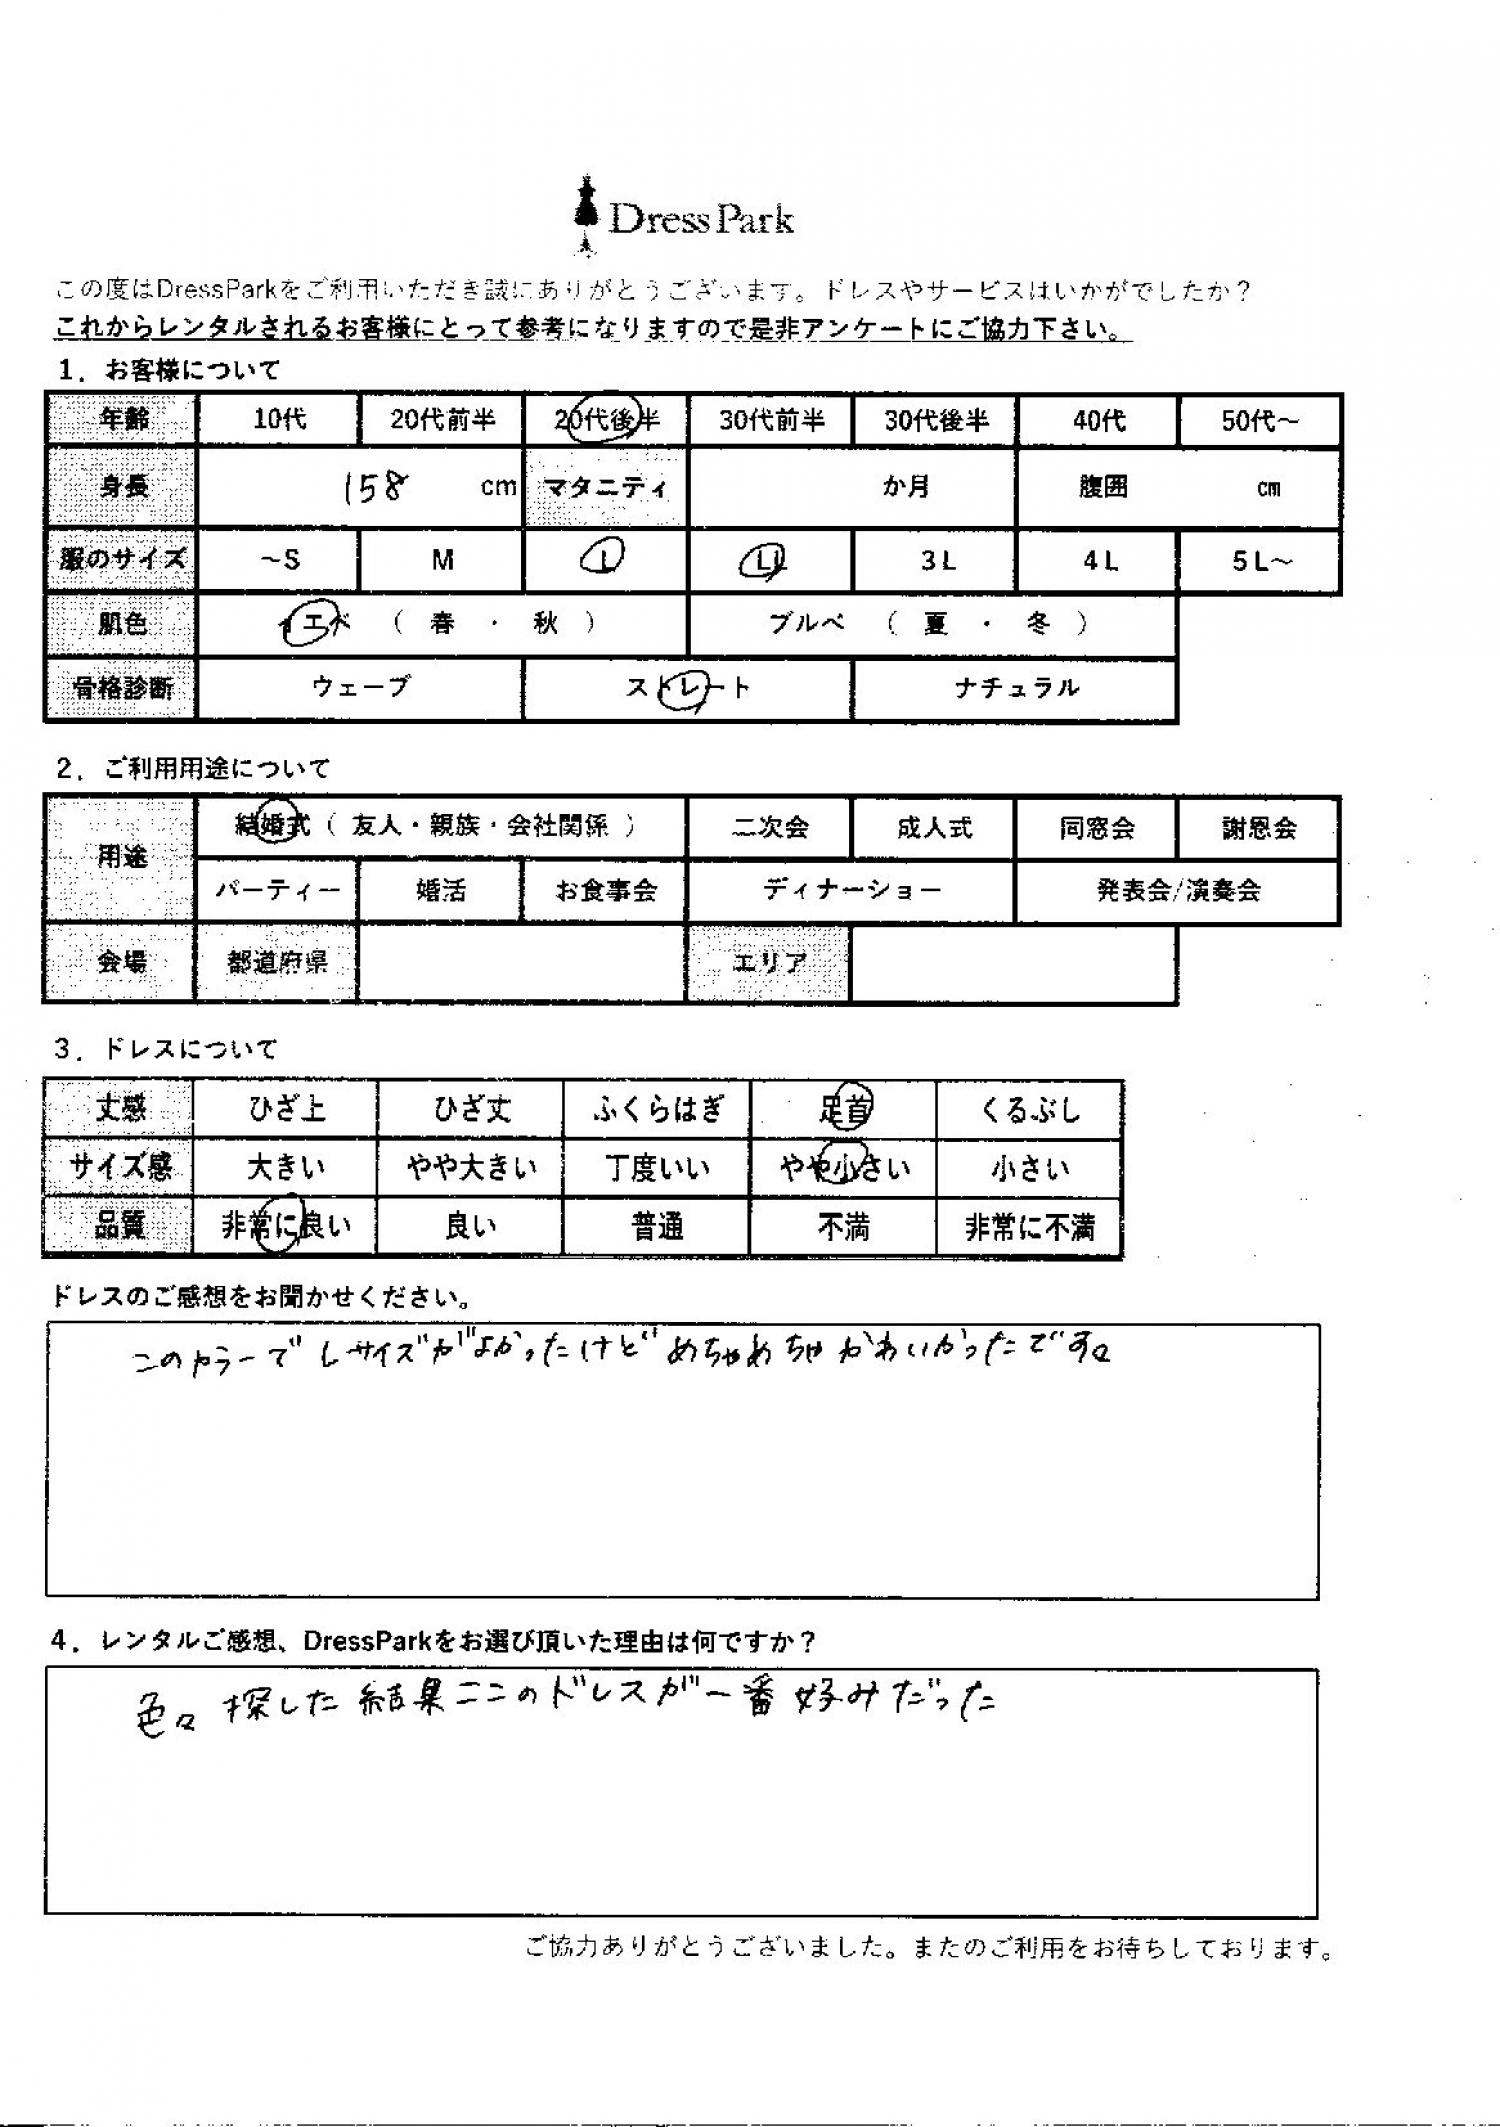 DressPark
この度はDressParkをご利用いただき誠にありがとうございます。ドレスやサービスはいかがでしたか？
これからレンタルされるお客様にとって参考になりますので是非アンケートにご協力下さい。
1．お客様について
年齢 10代 20代前半 20代後半 30代前半 30代後半 40代 50代～
身長 158 cm マタニティ か月 腹囲 cm
服のサイズ ～S M L LL 3L 4L 5L～
肌色 イエベ（ 春 ・ 秋 ） ブルベ （ 夏 ・ 冬 ）
骨格診断 ウェーブ ストレート ナチュラル
2．ご利用用途について
用途 結婚式（ 友人・親族・会社関係 ） 二次会 成人式 同窓会 謝恩会
パーティー 婚活 お食事会 ディナーショー 発表会/演奏会
会場 都道府県 エリア
3．ドレスについて
丈感 ひざ上 ひざ丈 ふくらはぎ 足首 くるぶし
サイズ感 大きい やや大きい 丁度いい やや小さい 小さい
品質 非常に良い 良い 普通 不満 非常に不満
ドレスのご感想をお聞かせください。
このカラーでLサイズがよかったけどめちゃめちゃかわいかったです。
4．レンタルご感想、DressParkをお選び頂いた理由は何ですか？
色々探した結果ここのドレスが一番好みだった
ご協力ありがとうございました。またのご利用をお待ちしております。